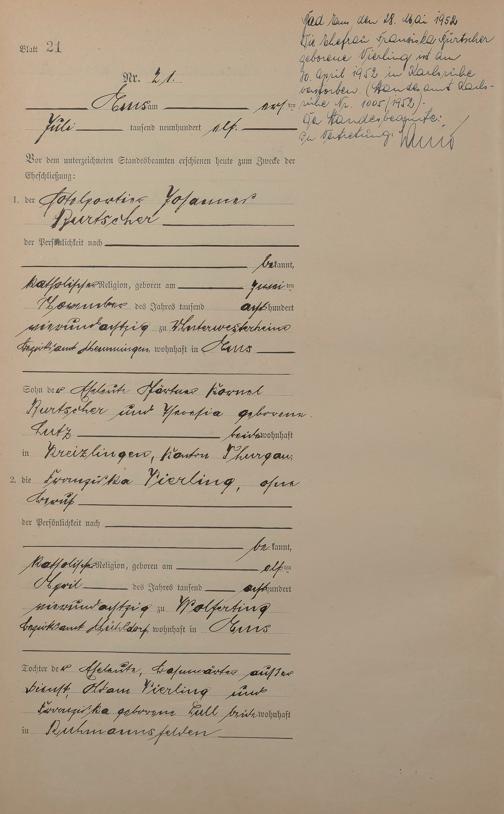 Blatt 21
Bad Ems, den 28. Mai 1952
Die Ehefrau Franziska Burtscher
geborene Vierling ist am
30. April 1952 in Karlsruhe
verstorben (Standesamt Karls-
ruhe Nr. 1005/1952).
Der Standesbeamte:
In Vertretung:
Nr. 21.
Ems am ersten
Juli tausend neunhundert elf
Vor dem unterzeichneten Standesbeamten erschienen heute zum Zwecke der
Eheschließung:
1. der Hotelportier Johannes
Burtscher
der Persönlichkeit nach
bekannt,
katholischer Religion, geboren am zweiten
November des Jahres tausend achthundert
vierundachtzig zu Unterwesterheim
Bezirksamt Memmingen wohnhaft in Ems
Sohn der Eheleute Pförtner Kornel
Burtscher und Theresia geborene
Lutz beide wohnhaft
in Kreizlingen, Kanton Thurgau
2. die Franziska Vierling, ohne
Beruf
der Persönlichkeit nach
bekannt,
katholischer Religion, geboren am elften
April des Jahres tausend achthundert
vierundachtzig zu Wolferting
Bezirksamt Mühldorf wohnhaft in Ems
Tochter der Eheleute, Bahnwärter außer
Dienst, Adam Vierling und
Franziska geborene Lull beide wohnhaft
in Ruhmannsfelden